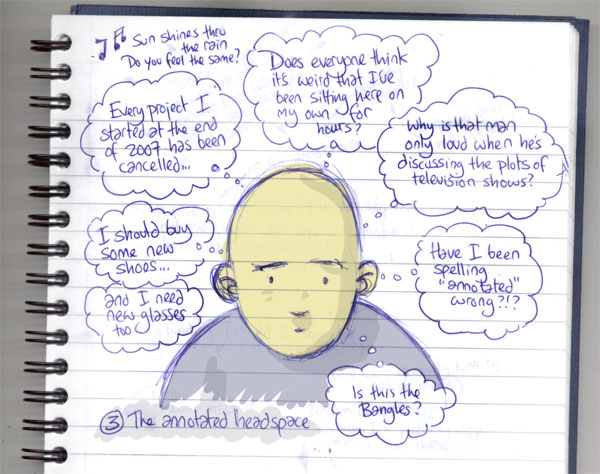 Sun shines thru
the rain
Do you feel the same?
Does everyone think
it's weird that I've
been sitting here on
my own for
hours?
Every project I
started at the end
of 2007 has been
cancelled...
Why is that man
only loud when he's
discussing the plots of
television shows?
I should buy
some new
shoes...
and I need
new glasses
too
Have I been
spelling
"annotated"
wrong?!?
Is this the
Bangles?
3 The annotated headspace